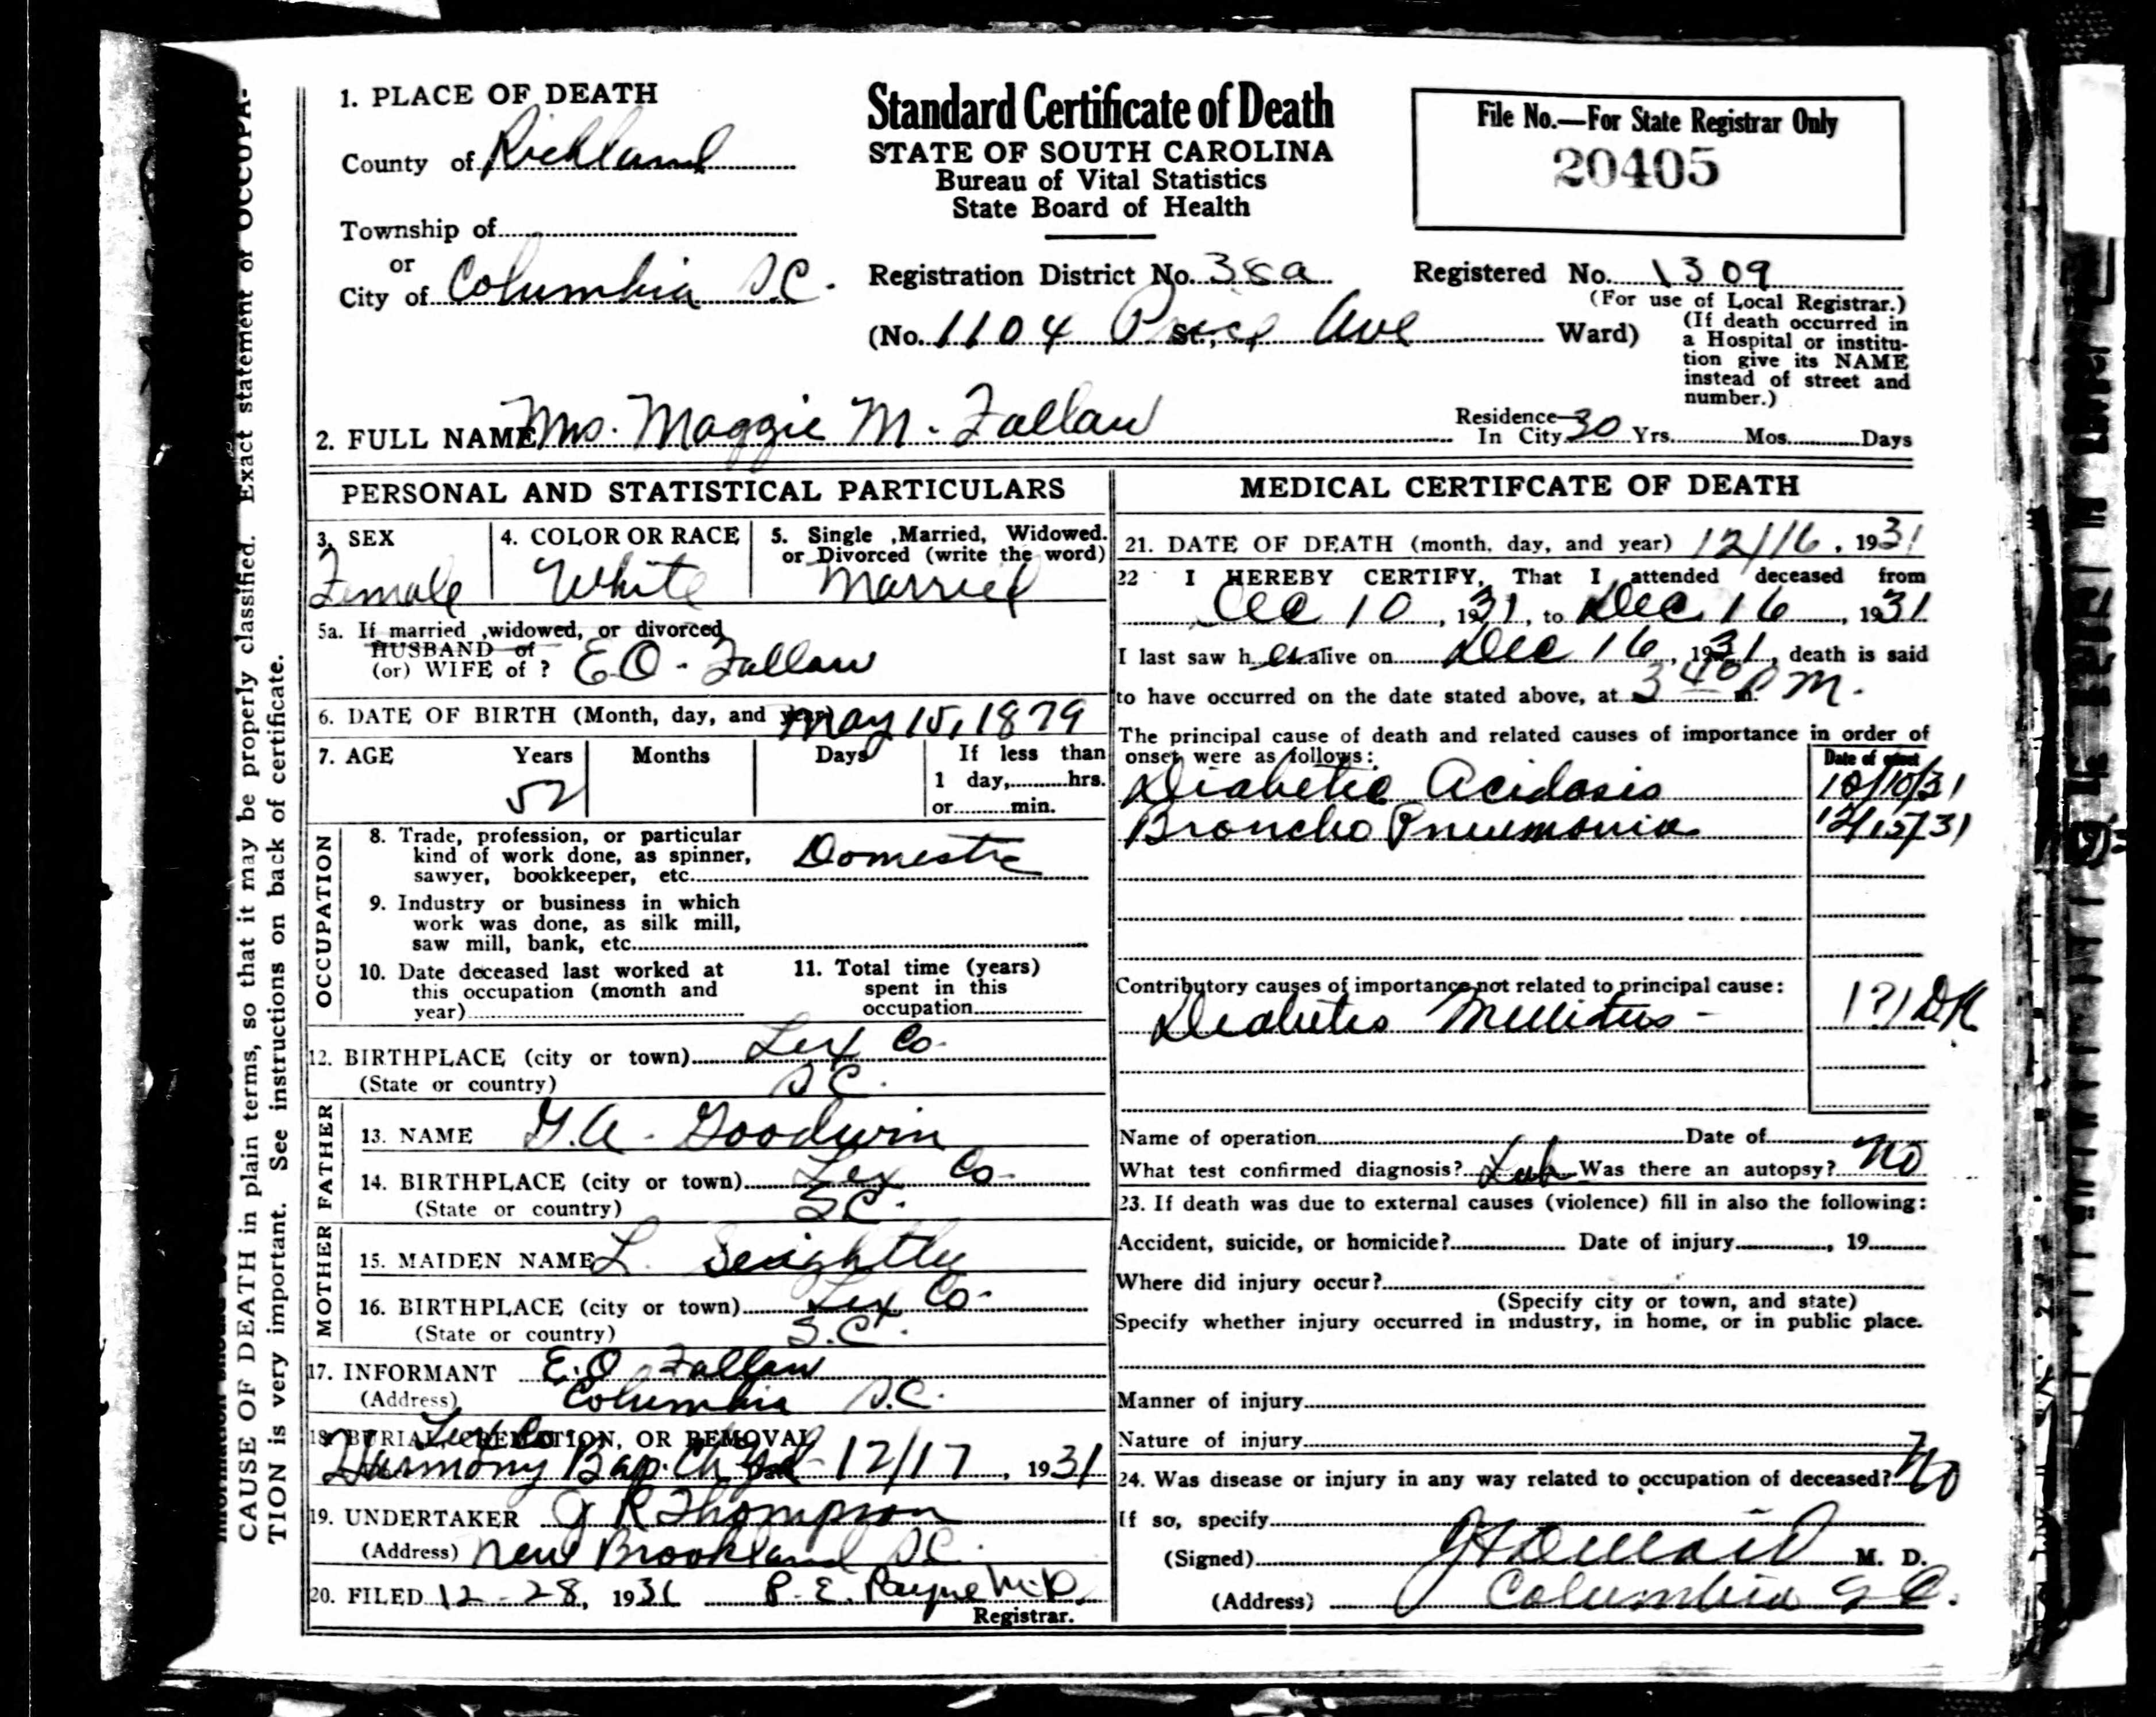 1. PLACE OF DEATH
County of Richland
Township of
or
City of Columbia S.C.
Standard Certificate of Death
STATE OF SOUTH CAROLINA
Bureau of Vital Statistics
State Board of Health
File No.—For State Registrar Only
20405
Registration District No. 38a
Registered No. 1309
(For use of Local Registrar.)
(No. 1104 Price St.; Ave Ward)
(If death occurred in
a Hospital or institu-
tion give its NAME
instead of street and
number.)
2. FULL NAME Mrs. Maggie M. Fallaw
Residence
In City 30 Yrs. Mos. Days
PERSONAL AND STATISTICAL PARTICULARS
3. SEX
Female
4. COLOR OR RACE
White
5. Single ,Married, Widowed.
or Divorced (write the word)
Married
5a. If married ,widowed, or divorced
HUSBAND of
(or) WIFE of ? E O. Fallaw
6. DATE OF BIRTH (Month, day, and year) May 15, 1879
7. AGE Years Months Days If less than
52 1 day, hrs.
or min.
OCCUPATION
8. Trade, profession, or particular
kind of work done, as spinner,
sawyer, bookkeeper, etc. Domestic
9. Industry or business in which
work was done, as silk mill,
saw mill, bank, etc.
10. Date deceased last worked at
this occupation (month and
year)
11. Total time (years)
spent in this
occupation
12. BIRTHPLACE (city or town) Lex Co.
(State or country) S.C.
FATHER
13. NAME G.A. Goodwin
14. BIRTHPLACE (city or town) Lex Co.
(State or country) S.C.
MOTHER
15. MAIDEN NAME L.
16. BIRTHPLACE (city or town) Lex Co.
(State or country) S.C.
17. INFORMANT E.O. Fallaw
(Address) Columbia S.C.
18. BURIAL, CREMATION, OR REMOVAL
Lex Co
Harmony Bap. Ch Yd 12/17, 1931
19. UNDERTAKER J R Thompson
(Address) New Brookland S.C.
20. FILED 12-28, 1931 P. E. Payne M.D.
Registrar.
MEDICAL CERTIFCATE OF DEATH
21. DATE OF DEATH (month, day, and year) 12/16, 1931
22 I HEREBY CERTIFY, That I attended deceased from
Dec 10, 1931, to Dec 16, 1931
I last saw h er alive on Dec 16, 1931, death is said
to have occurred on the date stated above, at 3 40 P m. M.
The principal cause of death and related causes of importance in order of
onset were as follows:
Date of onset
Diabetic Acidosis 12/10/31
Broncho Pneumonia 12/15/31
Contributory causes of importance not related to principal cause:
Diabetes Mellitus - 1?1 DK
Name of operation Date of
What test confirmed diagnosis? Lab Was there an autopsy? No
23. If death was due to external causes (violence) fill in also the following:
Accident, suicide, or homicide? Date of injury , 19
Where did injury occur?
(Specify city or town, and state)
Specify whether injury occurred in industry, in home, or in public place.
Manner of injury
Nature of injury
24. Was disease or injury in any way related to occupation of deceased? No
If so, specify
(Signed) M. D.
(Address) Columbia S.C.
CAUSE OF DEATH in plain terms, so that it may be properly classified. Exact statement of OCCUPA-
TION is very important. See instructions on back of certificate.